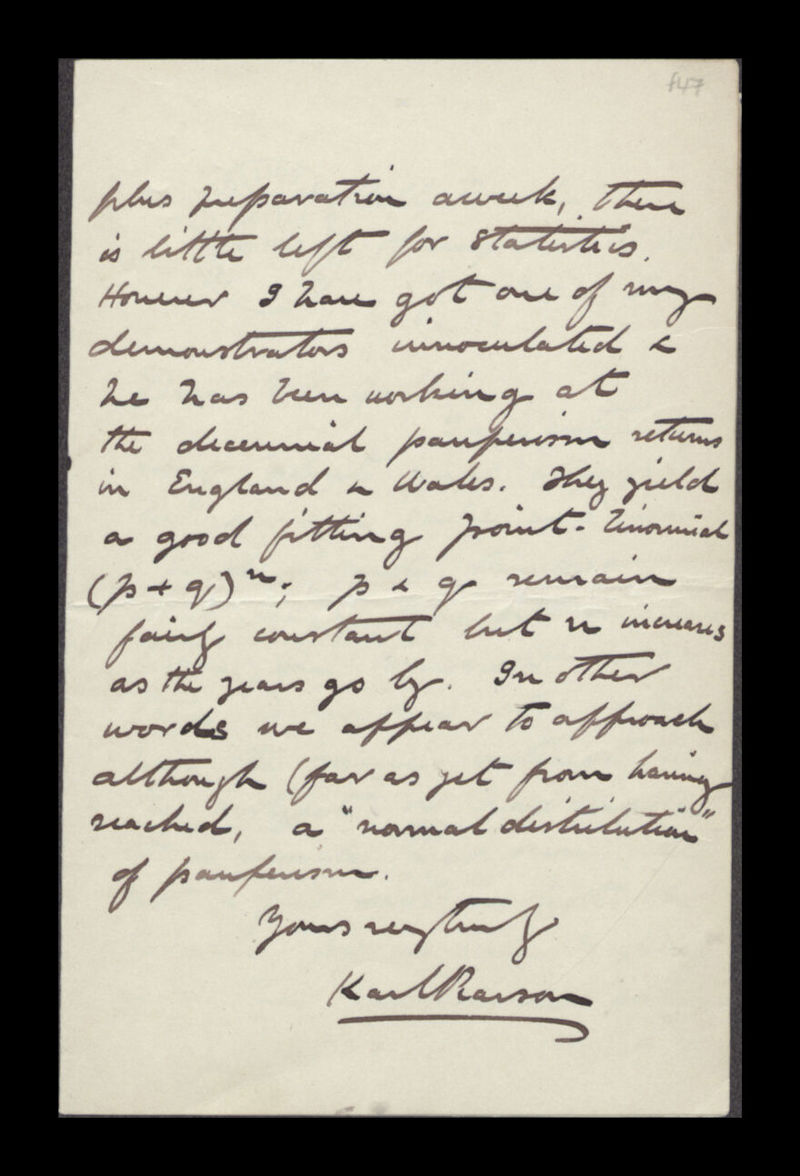 f47
plus preparation a week, there
is little left for statistics.
However I have got one of my
demonstrators innoculated &
he has been working at
the decennial pauperism returns
in England & Wales. They yield
a good fitting point-binomial
(p + q)ⁿ; p & q remain
fairly constant but n increases
as the years go by. In other
words we appear to approach
although (far as yet from having
reached, a "normal distribution"
of pauperism.
Yours very truly
Karl Pearson